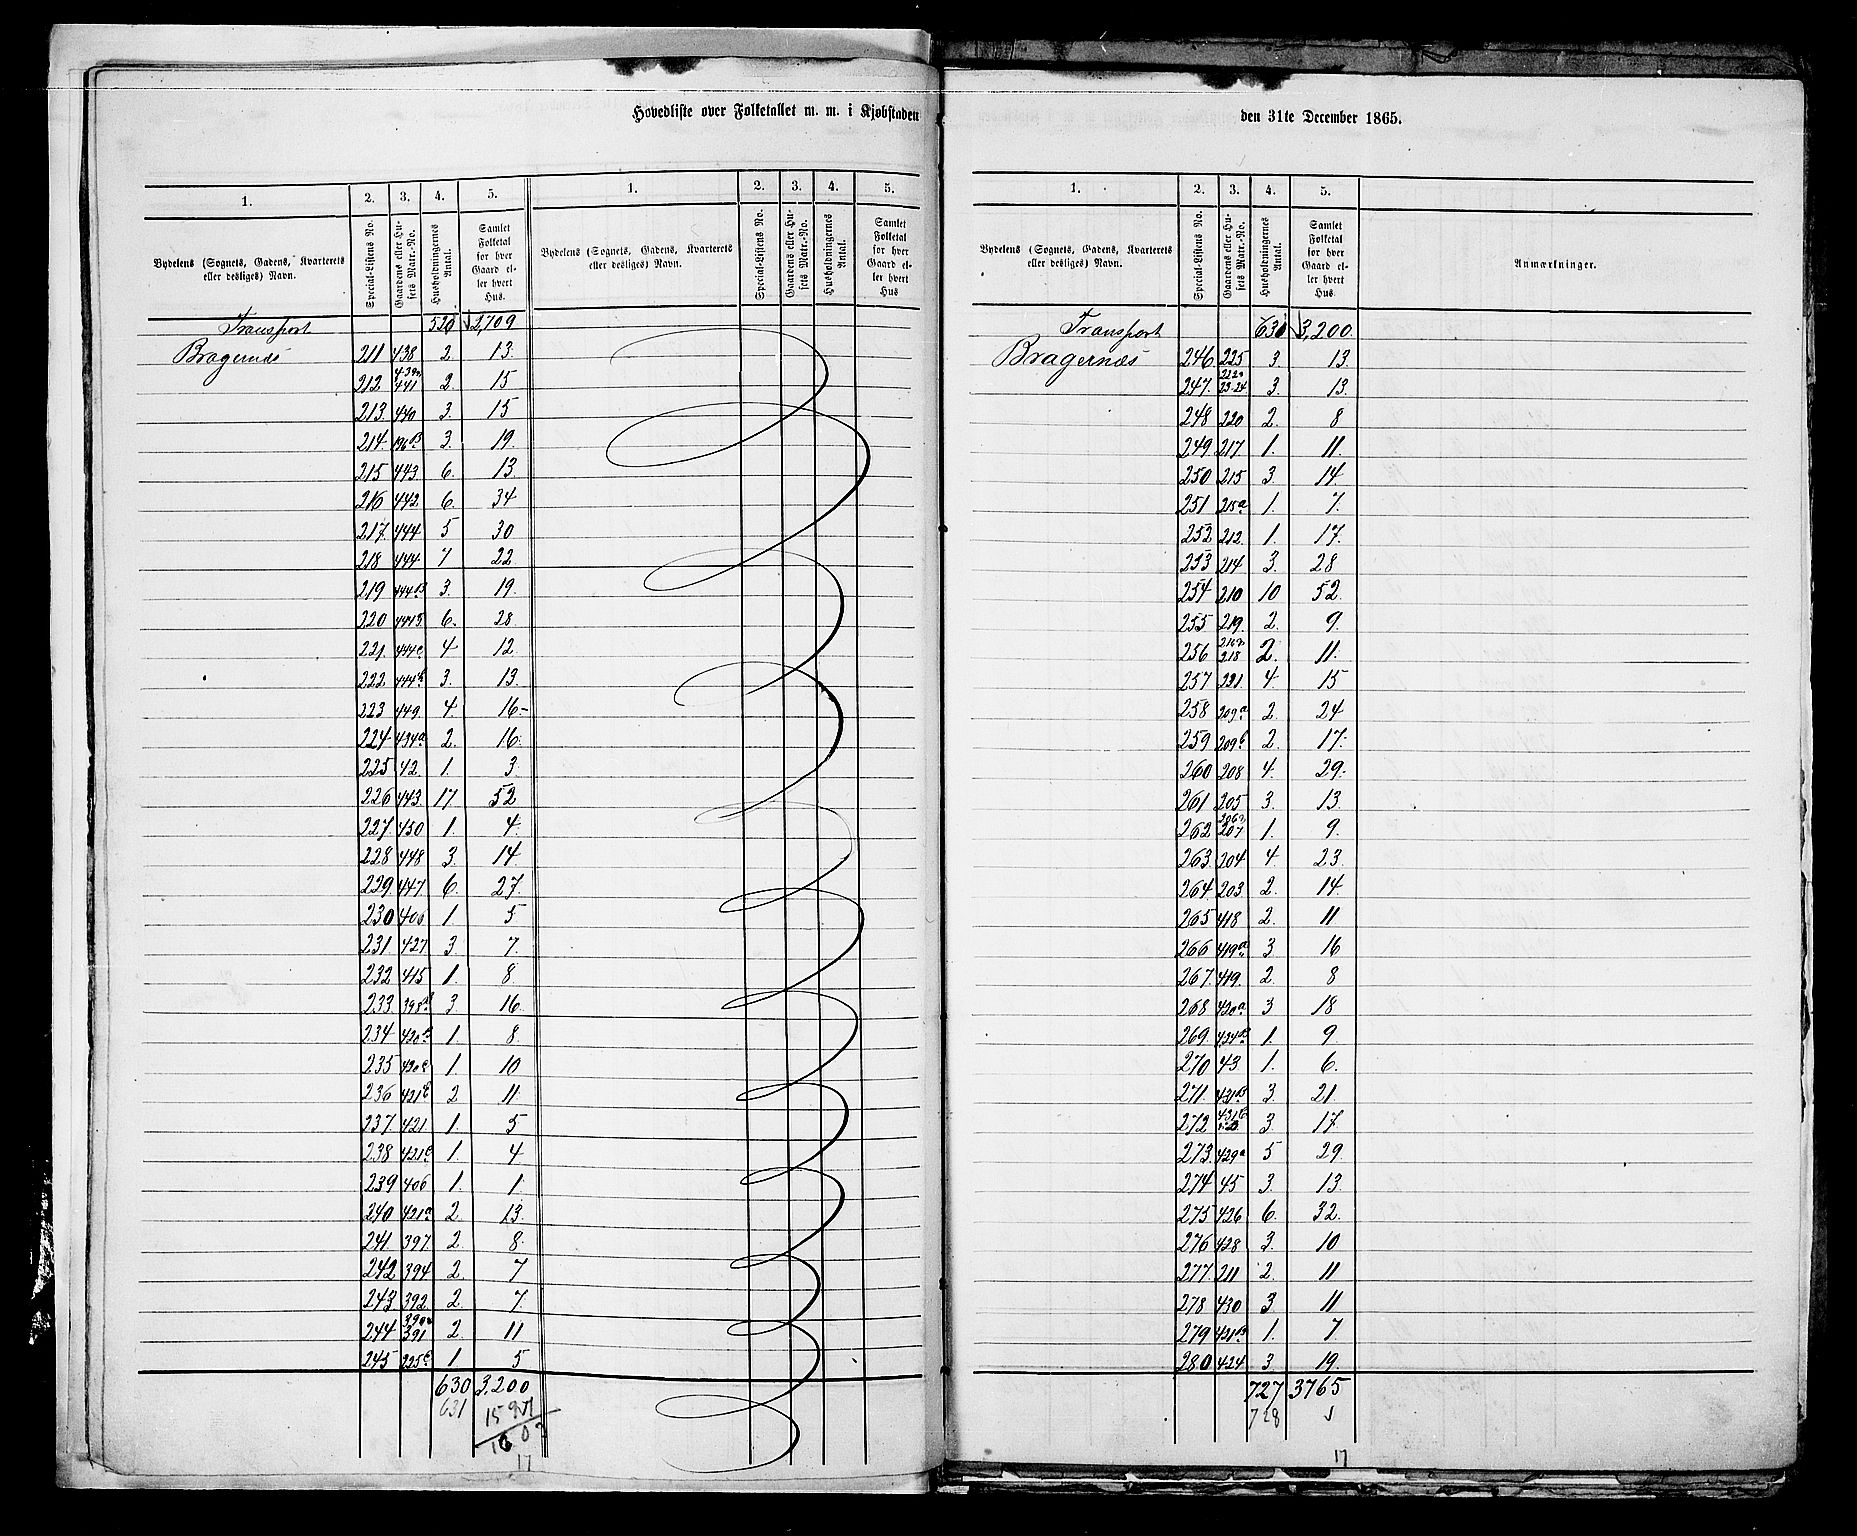 Hovedliste over Folketallet m. m. i Kjøbstaden
1. 2. 3. 4. 5. 1. 2. 3. 4. 5.
Bydelens (Sognets, Gadens, Kvarterets eller desliges) Navn. Special-Listens No. Gaardens eller Husets Matr.-No. Husholdningernes Antal. Samlet Folketal for hver Gaard eller hvert Hus. Bydelens (Sognets, Gadens, Kvarterets eller desliges) Navn. Special-Listens No. Gaardens eller Husets Matr.-No. Husholdningernes Antal. Samlet Folketal for hver Gaard eller hvert Hus
Transport 520 2,709
Bragernæs 211 438 2 13.
212. 441 2. 15
213. 440 3. 15
214. 196B 3. 19.
215 443. 6. 13
216 442. 6. 34
217. 444 5 30
218 444 7 22
219 444B 3. 19.
220 6. 28
221. 444c 4 12
222 444b 3. 13.
223 449. 4. 16-
224 434a 2. 16.
225 42. 1. 3.
226 443. 17 52
227. 450 1. 4.
228 448 3. 14
229. 447. 6. 27.
230 406 1. 5
231 427 3 7.
232 415 1. 8.
233. 398a 3 16.
234 1. 8.
235 1. 10
236 421b 2 11.
237. 421. 1. 5
238 421c 1. 4
239 406 1. 1.
240 421a 2. 13.
241. 397. 2 8.
242 394 2. 7
243 392. 2. 7.
244 391 2 11
245 225c 1 5
630 3,200
631
17
den 31te December 1865.
1. 2. 3. 4. 5.
Bydelens (Sognets, Gadens, Kvarterets eller desliges) Navn. Special-Listens No. Gaardens eller Husets Matr.-No. Husholdningernes Antal. Samlet Folketal for hver Gaard eller hvert Hus. Anmærkninger.
Transport 630 3,200.
Bragernæs 246 225 3. 13.
247. 3. 13.
248 220 2. 8
249 217 1. 11.
250 215 3. 14.
251 215a 1. 7.
252 212. 1. 17.
253 214 3. 28
254 210 10 52.
255 219. 2. 9.
256 218 2. 11.
257 221 4. 15
258 209a 2. 24
259 209b 2. 17.
260 208 4. 29.
261 205 3. 13.
262 207 1. 9.
263. 204 4. 23.
264 203 2. 14.
265 418 2. 11
266 419a 3 16
267. 419. 2 8
268 420a 3 18
269. 1. 9
270 43 1. 6.
271. 431B 3. 21.
272 3. 17
273. 429a 5 29.
274 45 3. 13.
275 426 6. 32.
276 428 3. 10
277. 211 2. 11
278 430 3. 11
279 421B 1. 7.
280 424 3. 19.
727 3765
728
17